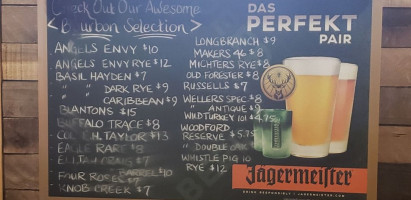 Check Out Our Awesome
< Bourbon Selection >
ANGELS ENVY $10
ANGELS ENVY RYE $12
BASIL HAYDEN $7
" " DARK RYE $9
" " CARIBBEAN $9
BLANTONS $15
BUFFALO TRACE $8
COL. E.H. TAYLOR $13
EAGLE RARE $8
$7
FOUR ROSES $7
BARREL $10
KNOB CREEK $7
LONGBRANCH $9
MAKERS 46 $8
MICHTERS RYE $8
OLD FORESTER $8
RUSSELLS $7
WELLERS SPEC $8
" ANTIQUE $9
WILD TURKEY 101 $4.75
WOODFORD
RESERVE $5.75
" DOUBLE OAK
WHISTLE PIG 10
RYE $12
DAS
PERFEKT
PAIR
Jägermeister
DRINK RESPONSIBLY | JAGERMEISTER.COM